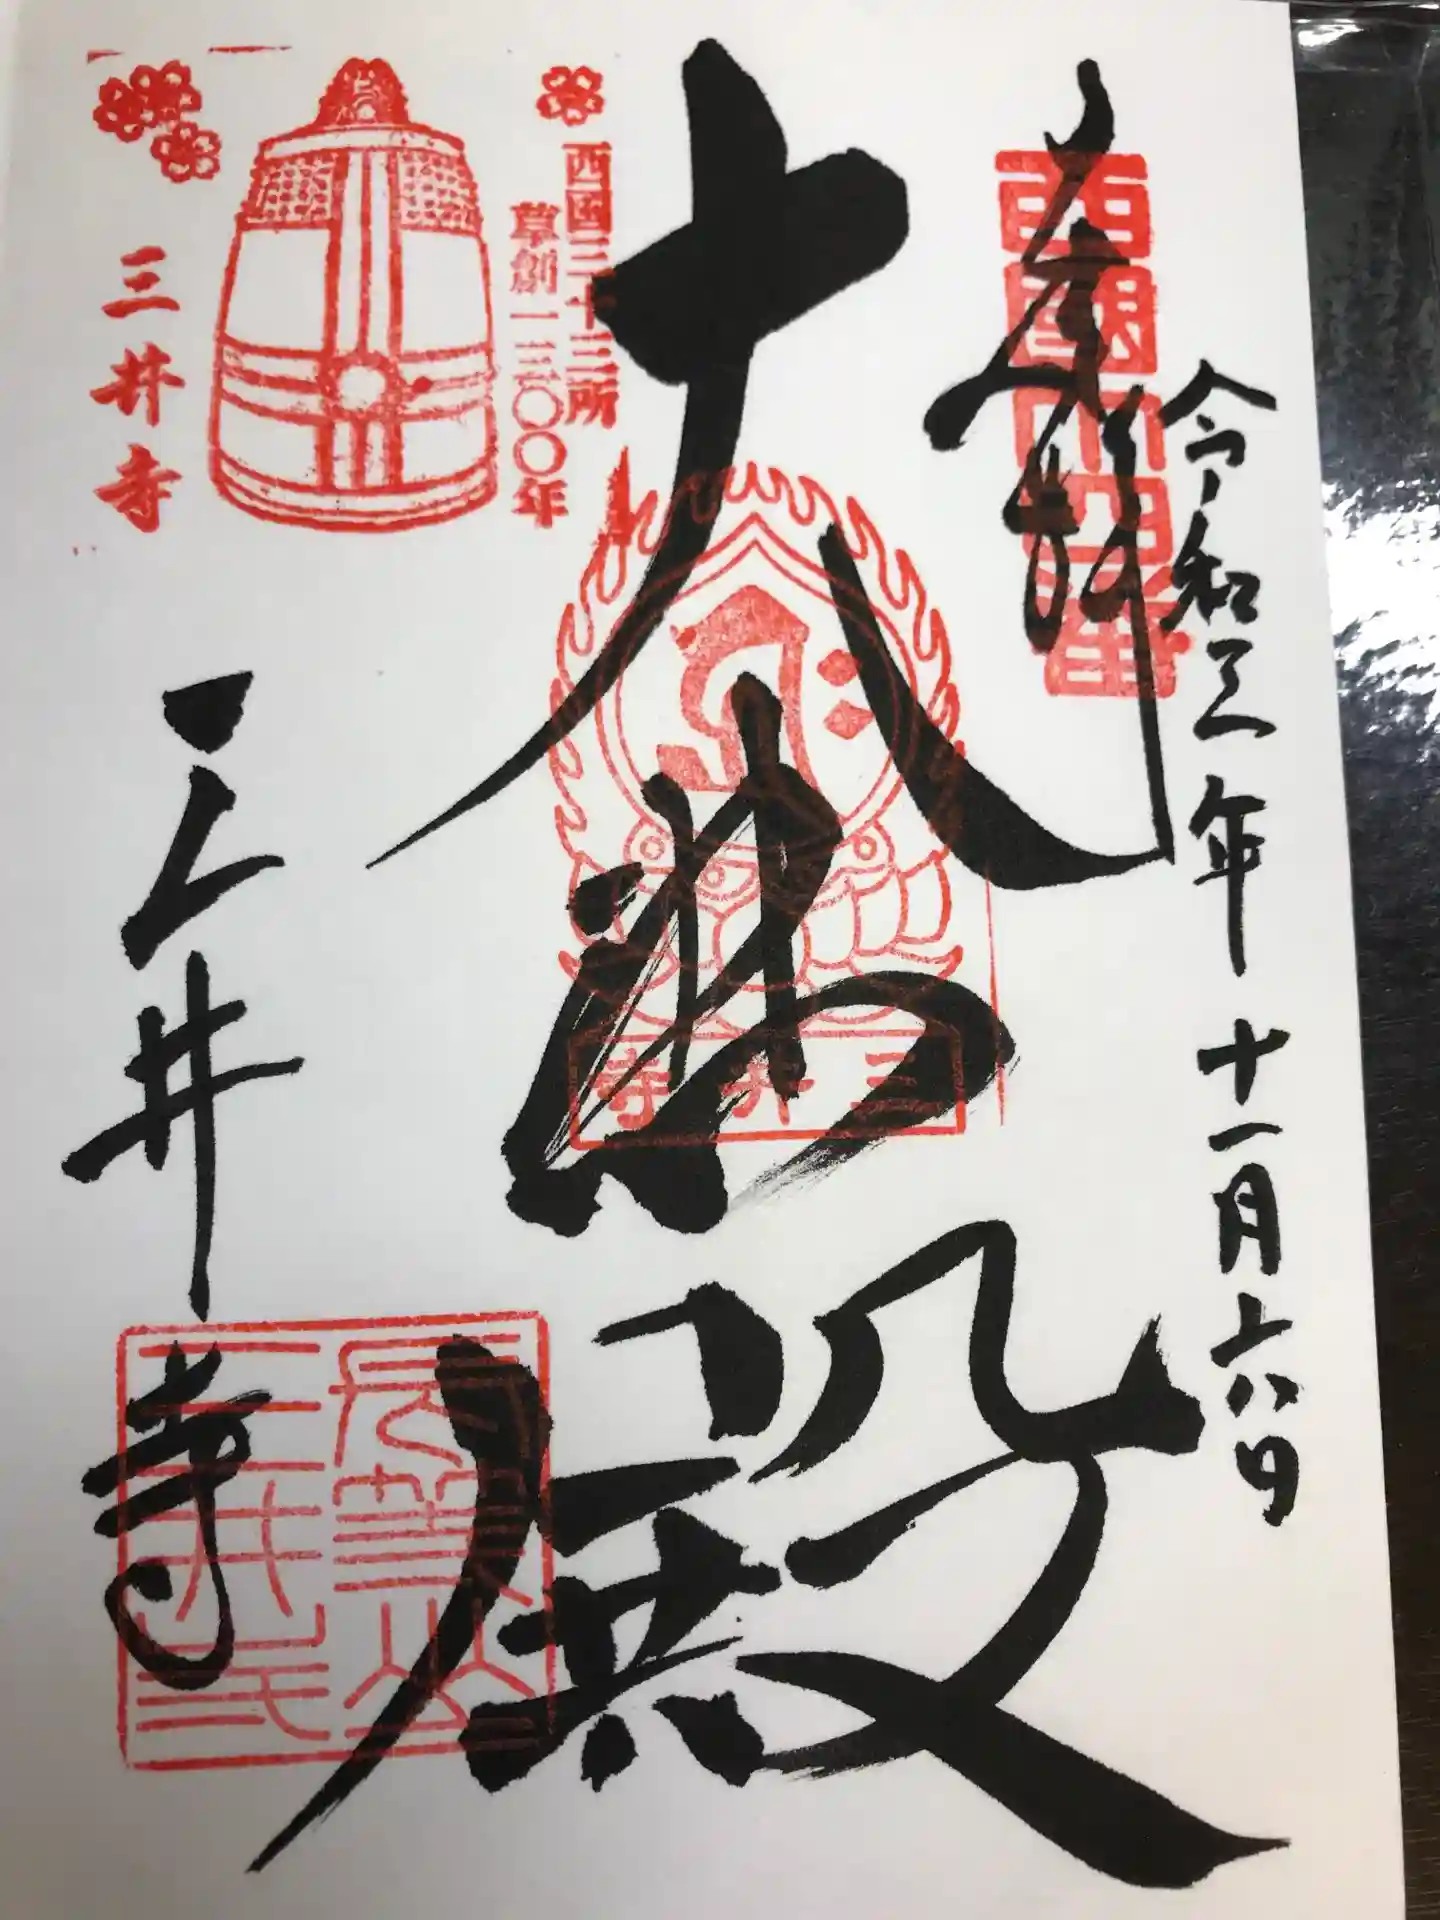 奉拝
西國十四番
令和三年十一月六日
大悲殿
三井寺
西国三十三所
草創一三〇〇年
三井寺
三井寺